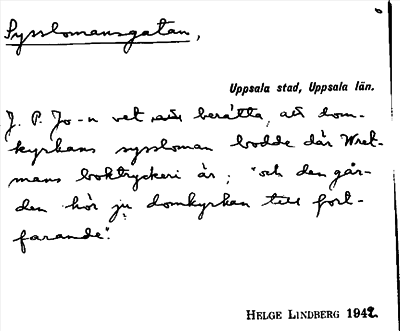 Sysslomansgatan,
Uppsala stad, Uppsala län.
J. P. Jo-n vet att berätta, att dom-
kyrkans syssloman bodde där Wret-
mans boktryckeri är; "och den går-
den hör ju domkyrkan till fort-
farande".
HELGE LINDBERG 1942.